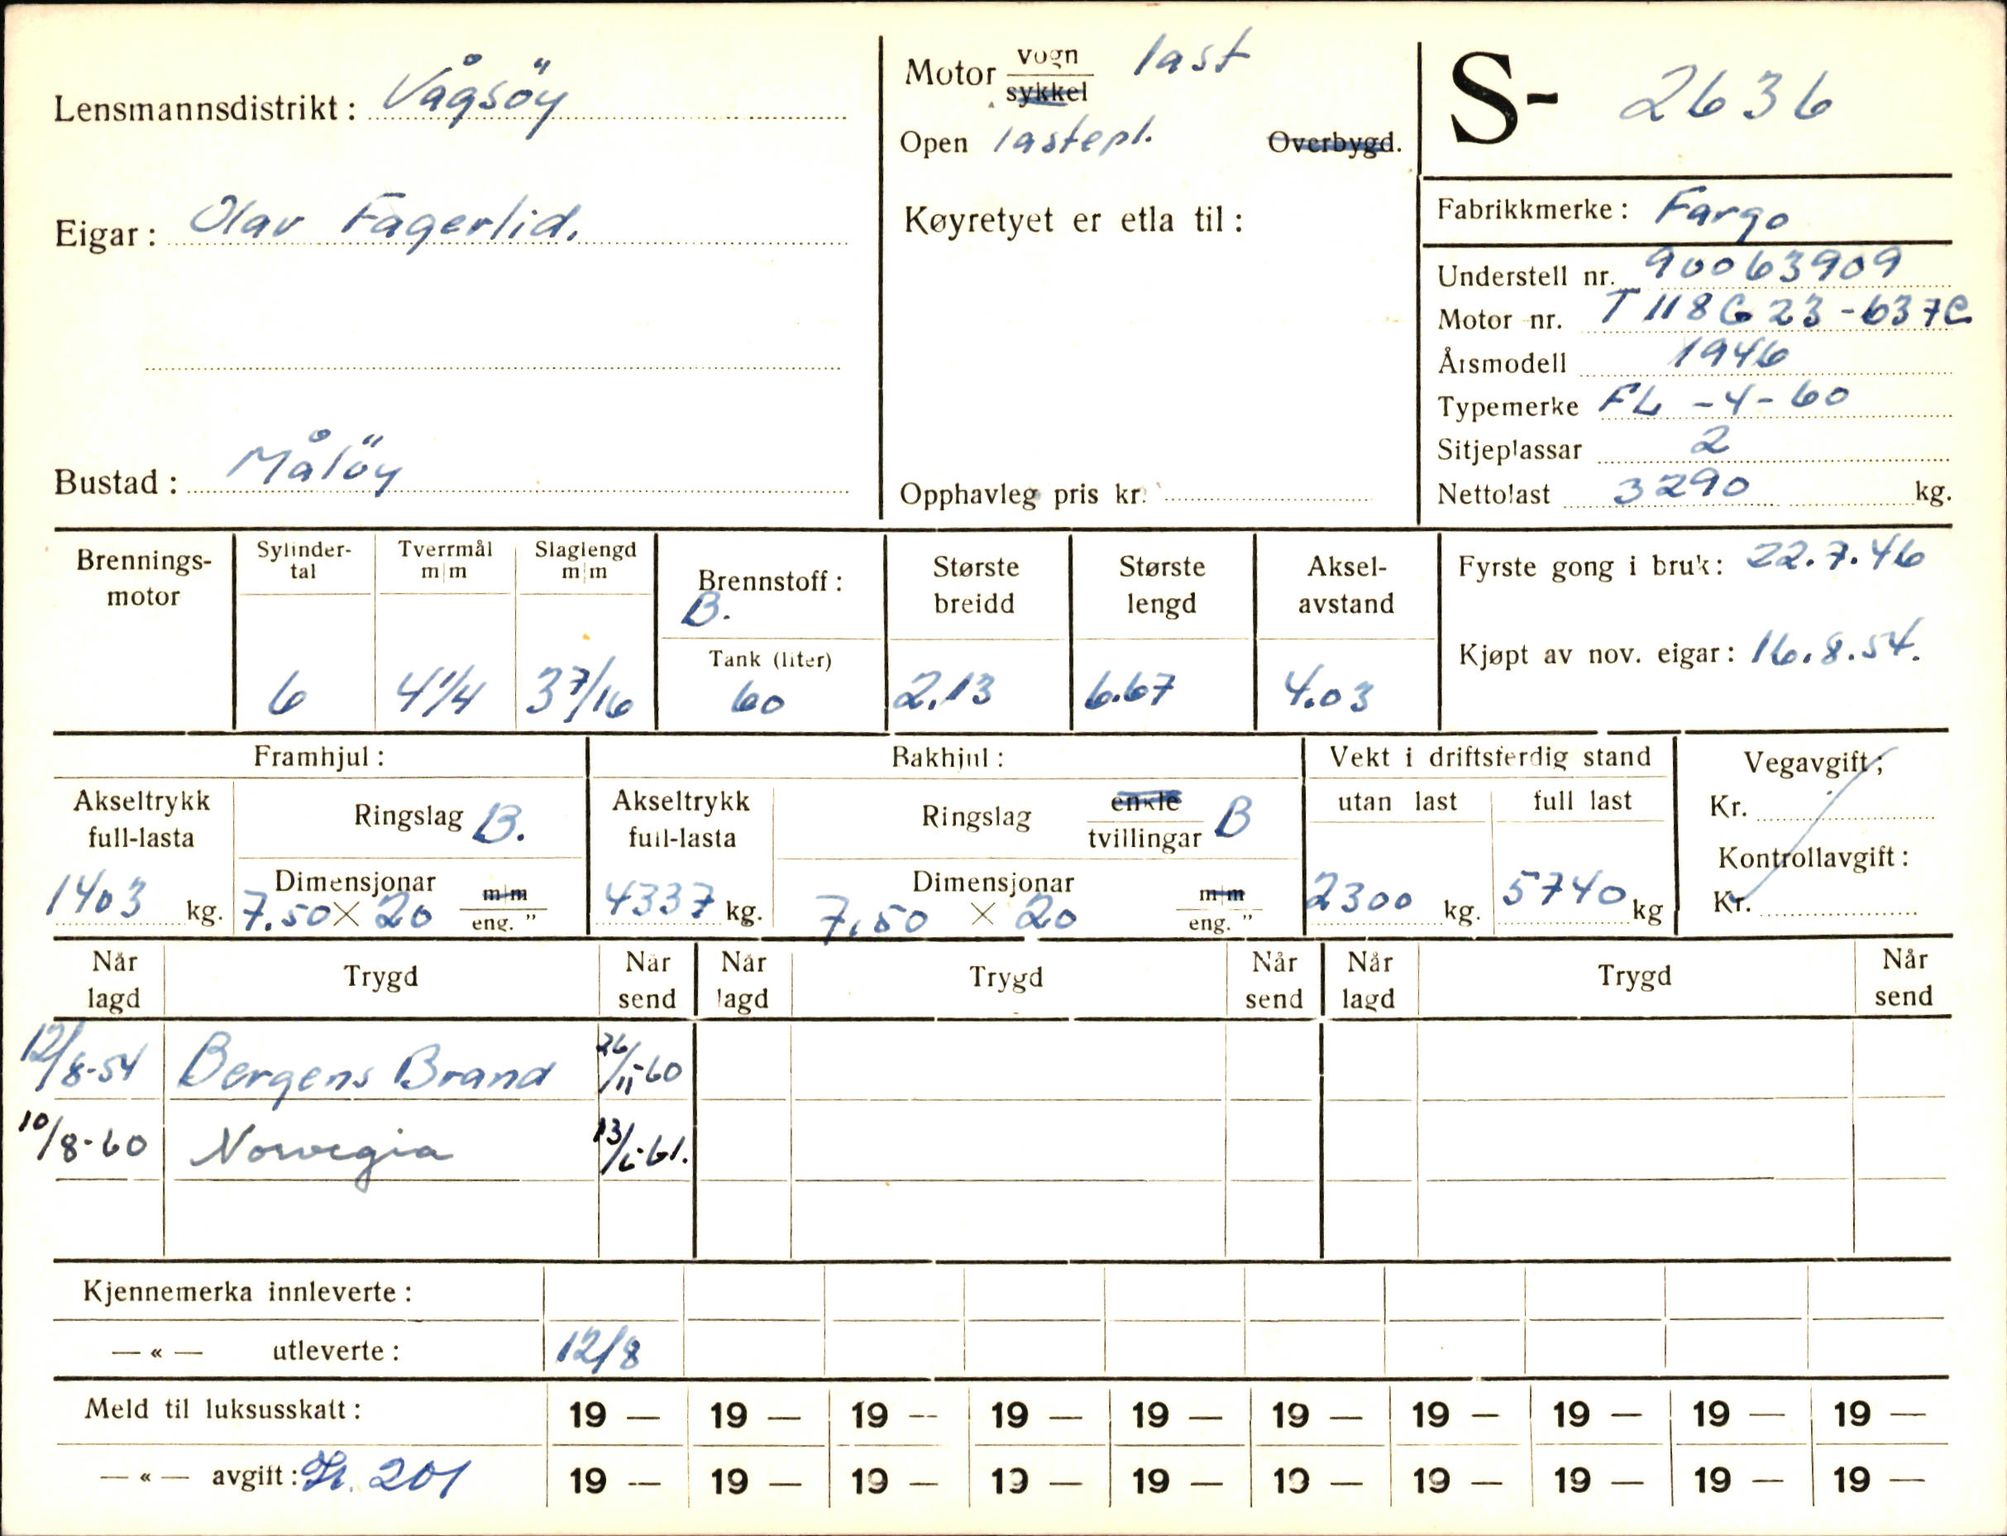 Lensmannsdistrikt: Vågsöy
Eigar: Olav Fagerlid.
Bustad: Målöy
Motor vogn last
sykkel
Open lastepl. Overbygd.
Køyretyet er etla til:
Opphavleg pris kr.
S- 2636
Fabrikkmerke: Fargo
Understell nr. 90063909
Motor nr. T118G23-637C
Årsmodell 1946
Typemerke FL-4-60
Sitjeplassar 2
Nettolast 3290 kg.
Brennings-
motor
Sylinder-
tal
6
Tverrmål
m|m
4 1/4
Slaglengd
m|m
3 7/16
Brennstoff:
B.
Tank (liter)
60
Største
breidd
2.13
Største
lengd
6.67
Aksel-
avstand
4.03
Fyrste gong i bruk: 22.7.46
Kjøpt av nov. eigar: 16.8.54.
Framhjul:
Akseltrykk
full-lasta
1403 kg.
Ringslag B.
Dimensjonar m|m
7.50 × 20 eng. "
Bakhjul:
Akseltrykk
full-lasta
4337 kg.
Ringslag enkle
tvillingar B
Dimensjonar m|m
7.50 × 20 eng. "
Vekt i driftsferdig stand
utan last full last
2300 kg. 5740 kg
Vegavgift;
Kr.
Kontrollavgift:
Kr.
Når lagd Trygd Når send Når lagd Trygd Når send Når lagd Trygd Når send
12/8-54 Bergens Brand 26/11-60
10/8-60 Norvegia
Kjennemerka innleverte:
— « — utleverte: 12/8
Meld til luksusskatt: 19 — 19 — 19 — 19 — 19 — 19 — 19 — 19 — 19 — 19 —
— « — avgift: 201 19 — 19 — 19 — 19 — 19 — 19 — 19 — 19 — 19 — 19 —